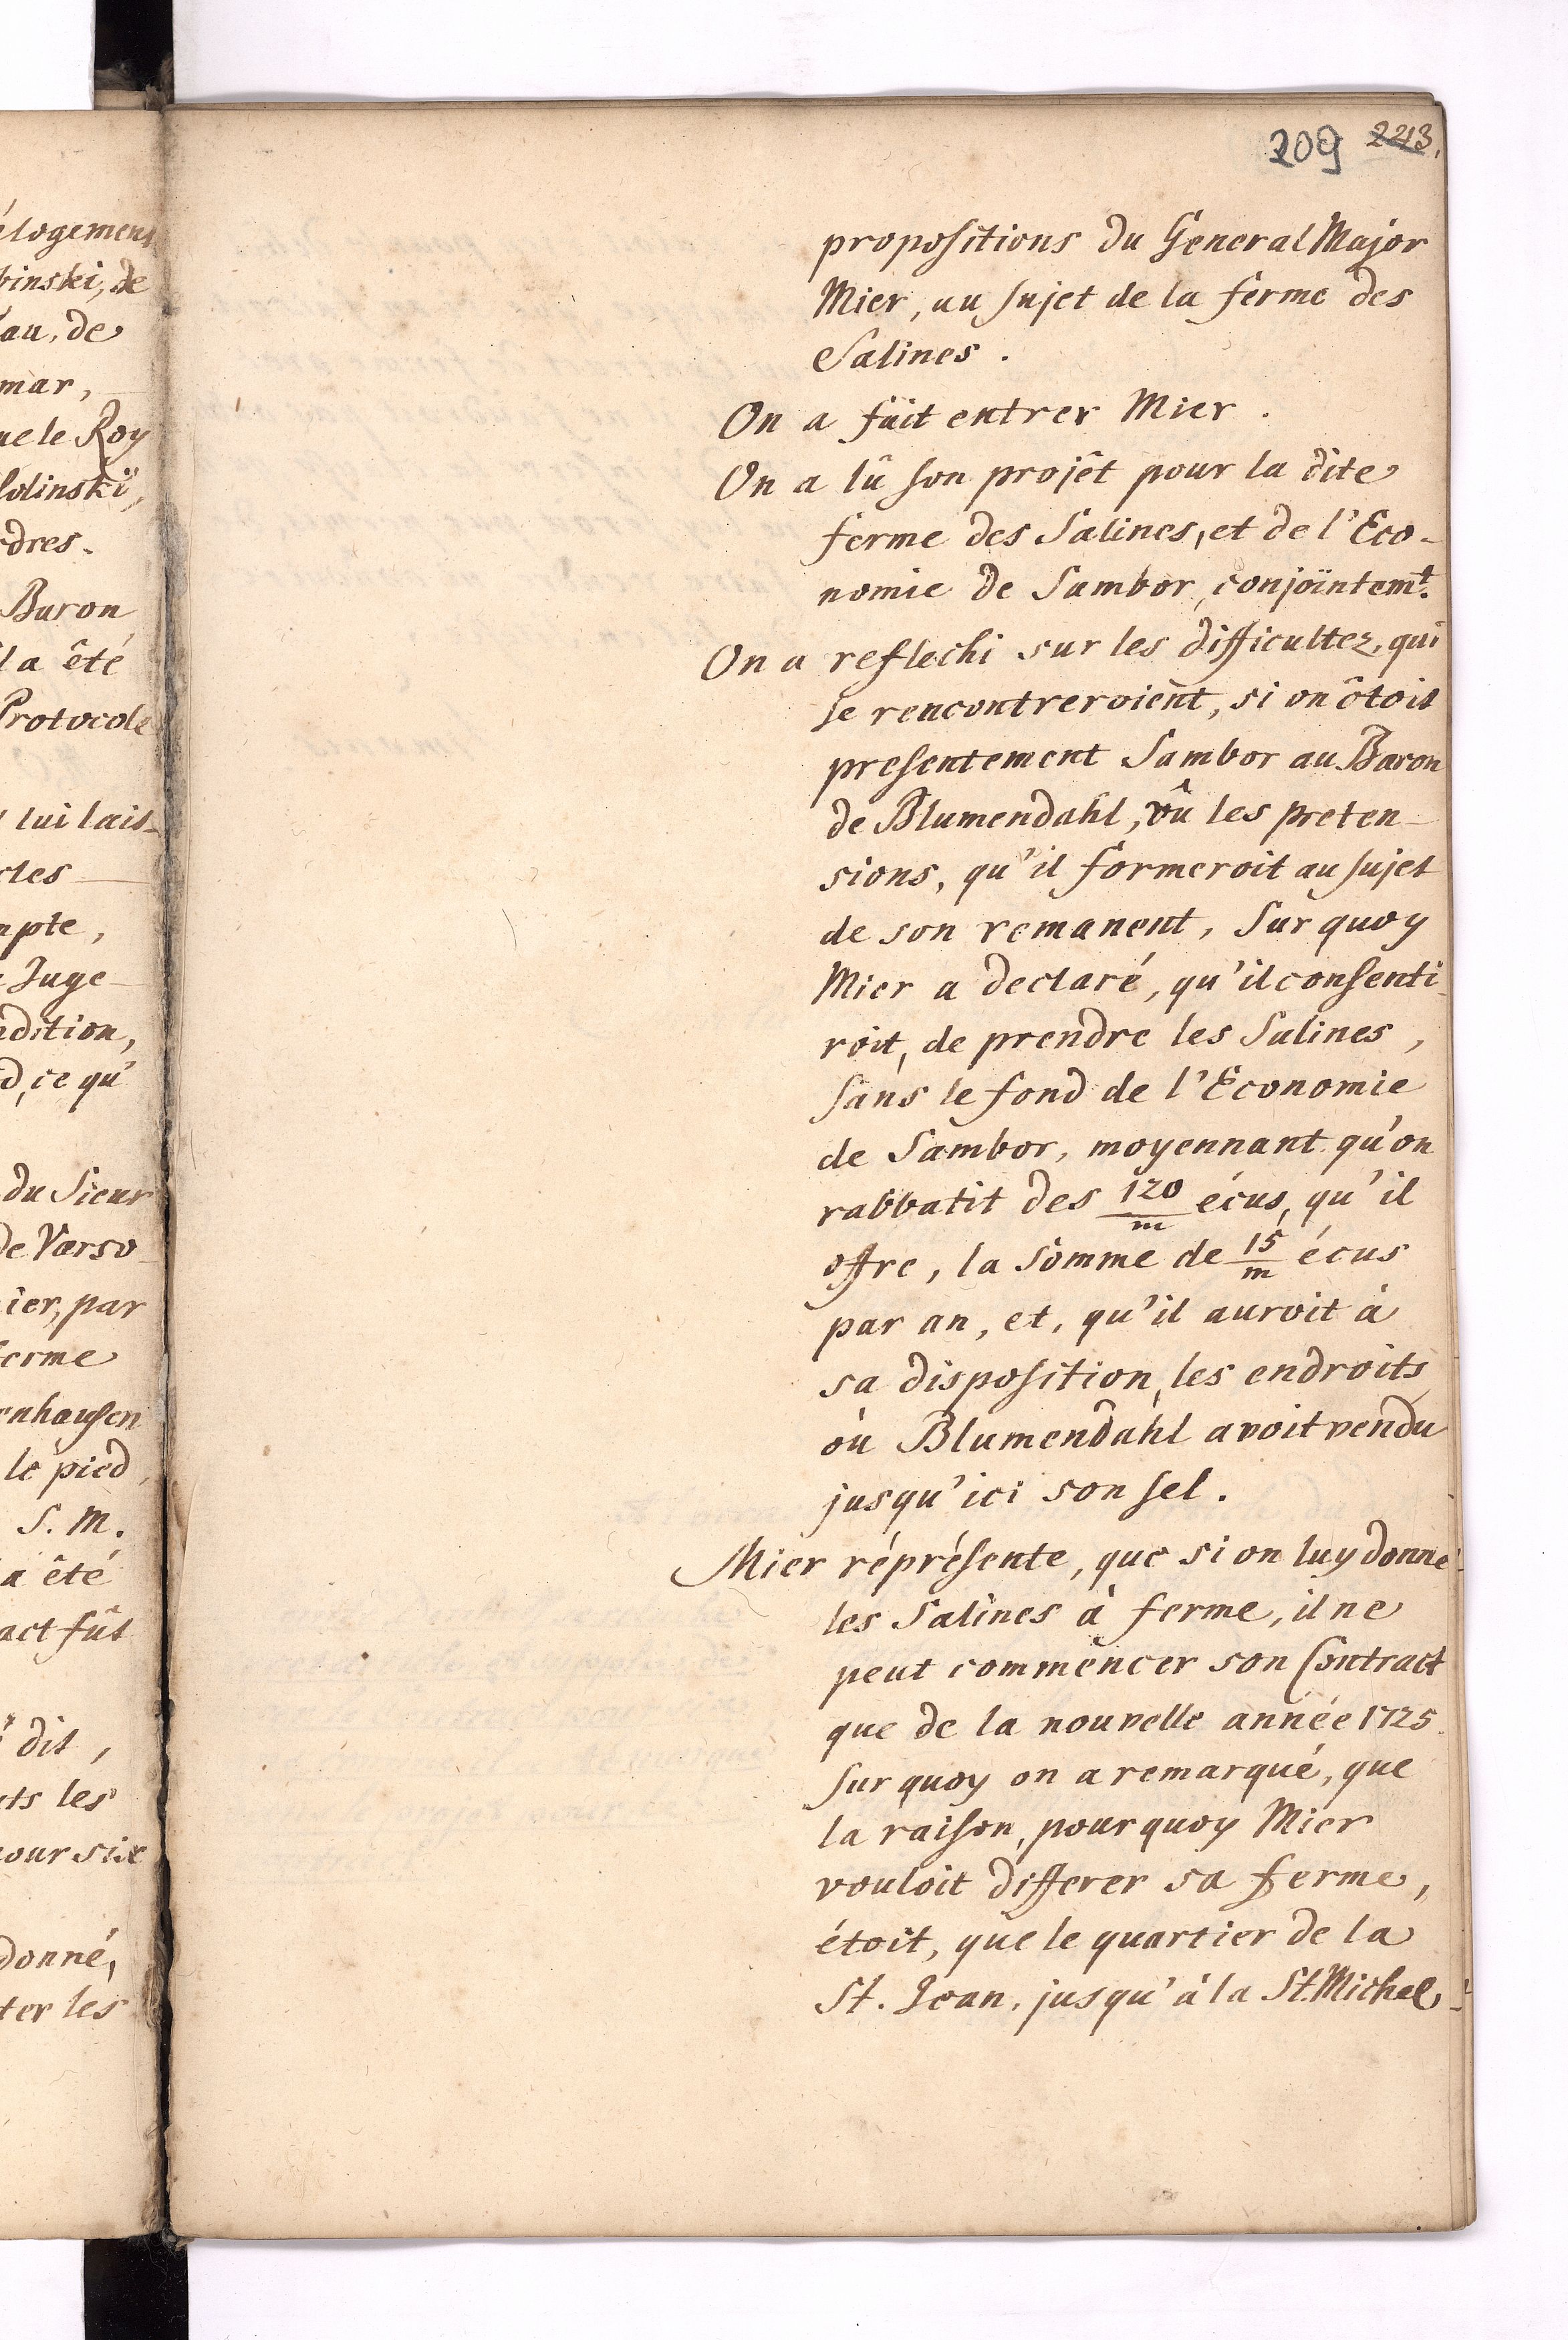 élogement
binski, de
au, de
mar,
ue le Roy
olinski,
dres.
Baron
l a êté
Protocole
lui lais-
cles
mpte,
Juge-
ndition,
d, ce qu'
du Sieur
de Varso-
ier, par
ferme
enhausen
le pied,
S. M.
a êté
act fût
dit,
ts les
our six
donné,
ter les
209 223.
propositions du General Major
Mier, au sujet de la ferme des
Salines.
On a fait entrer Mier.
On a lû son projêt pour la dite
ferme des Salines, et de l'Eco-
nomie de Sambor, conjointemt.
On a reflechi sur les difficultez, qui
se rencontreroient, si on ôtoit
presentement Sambor au Baron
de Blumendahl, vû les preten-
sions, qu'il formeroit au sujet
de son remanent, Sur quoy
Mier a declaré, qu'il consenti-
roit, de prendre les Salines,
sans le fond de l'Economie
de Sambor, moyennant qu'on
rabbatit des 120/m écus, qu'il
offre, la somme de 15/m écus
par an, et, qu'il auroit à
sa disposition, les endroits
où Blumendahl avoit vendu
jusqu'ici son sel.
Mier réprésente, que si on luy donne
les Salines à ferme, il ne
peut commencer son Contract
que de la nouvelle année 1725.
sur quoy on a remarqué, que
la raison, pourquoy Mier
vouloit differer sa ferme,
étoit, que le quartier de la
St. Jean, jusqu'à la St. Michel,